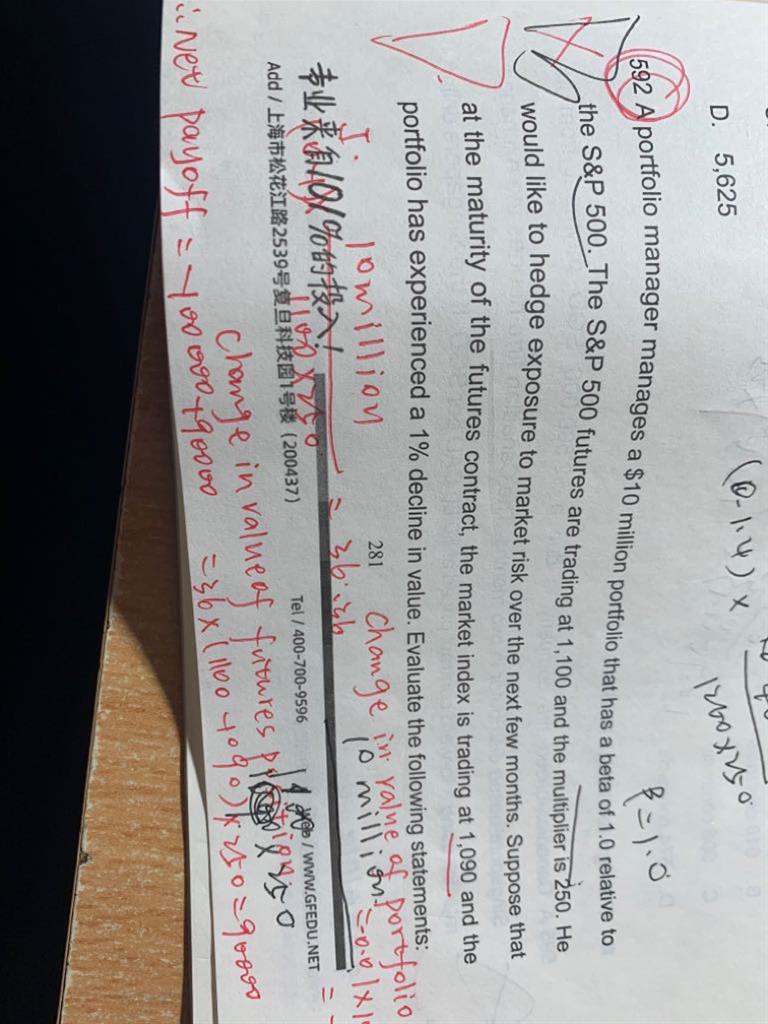 D. 5,625
(0-1.4) ×
1200×250
β=1.0
592 A portfolio manager manages a $10 million portfolio that has a beta of 1.0 relative to
the S&P 500. The S&P 500 futures are trading at 1,100 and the multiplier is 250. He
would like to hedge exposure to market risk over the next few months. Suppose that
at the maturity of the futures contract, the market index is trading at 1,090 and the
portfolio has experienced a 1% decline in value. Evaluate the following statements:
I. 10 million
1100×250
= 36.36
change in value of portfolio
10 million = 0.01×
281
专业来自101%的投入!
Add / 上海市松花江路2539号复旦科技园1号楼 (200437)
Tel / 400-700-9596
/ WWW.GFEDU.NET
×250
change in value of futures
=36×(1100-1090)×250=90000
∴ Net payoff = -100000+90000